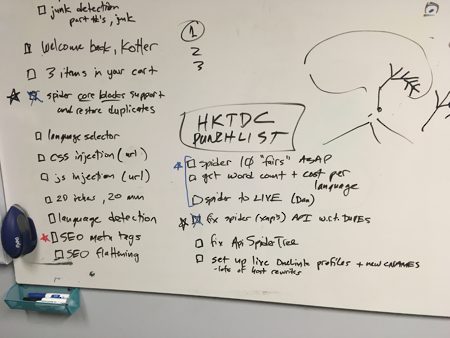 junk detection
part #'s, junk
Welcome back, Kotter
3 items in your cart
spider core blades support
and restore duplicates
language selector
CSS injection (url)
js injection (url)
20 , 20 min
language detection
SEO meta tags
SEO flattening
1
2
3
HKTDC
PUNCHLIST
spider 10 "fairs" ASAP
get word count + cost per
language
spider to LIVE (Dan)
fix spider API w.r.t. DUPES
fix Api SpiderTree
set up live OneLink profiles + new CNAMES
-lots of host rewrites